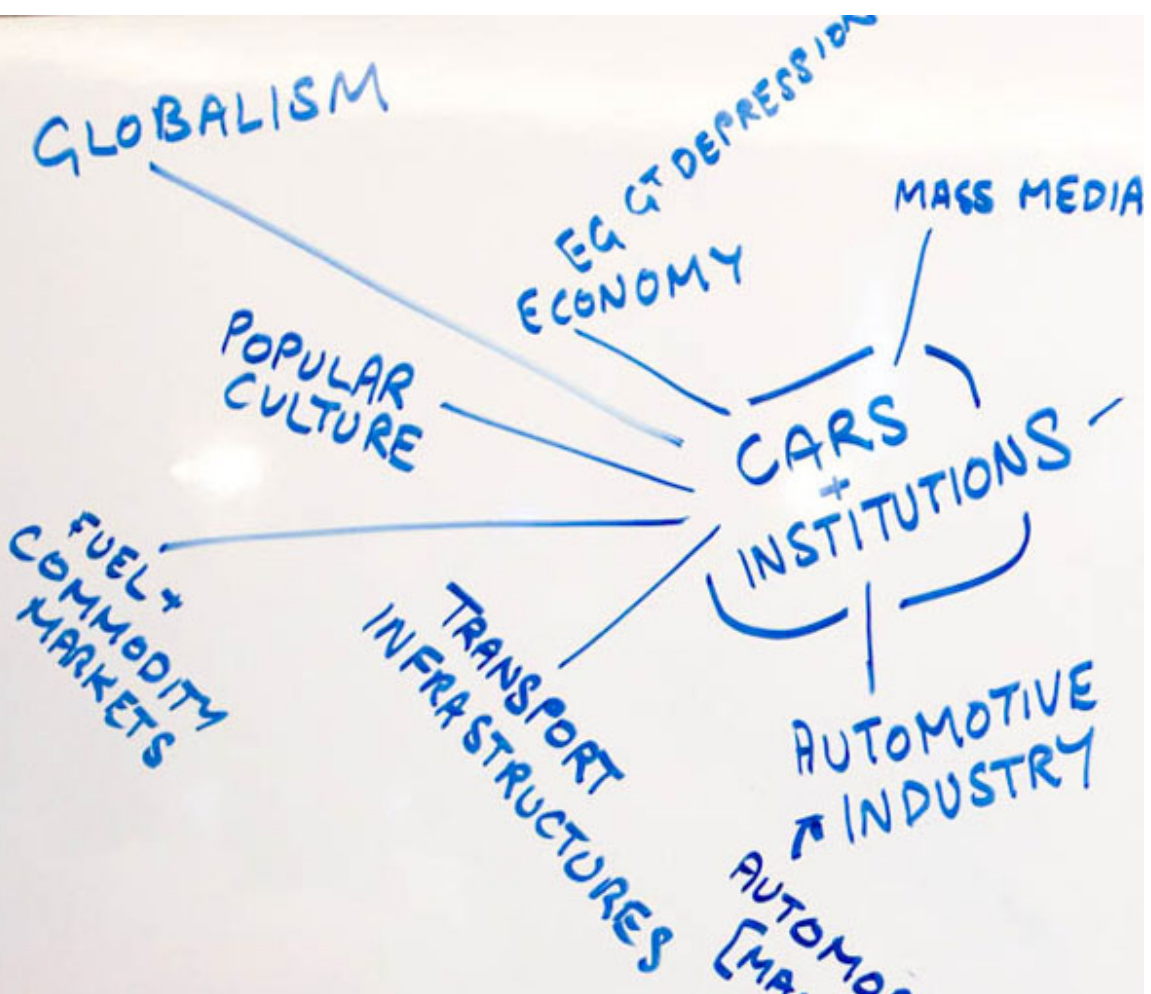 GLOBALISM
EG GT DEPRESSION
ECONOMY
MASS MEDIA
POPULAR
CULTURE
CARS
+
INSTITUTIONS
FUEL +
COMMODITY
MARKETS
TRANSPORT
INFRASTRUCTURES
AUTOMOTIVE
INDUSTRY